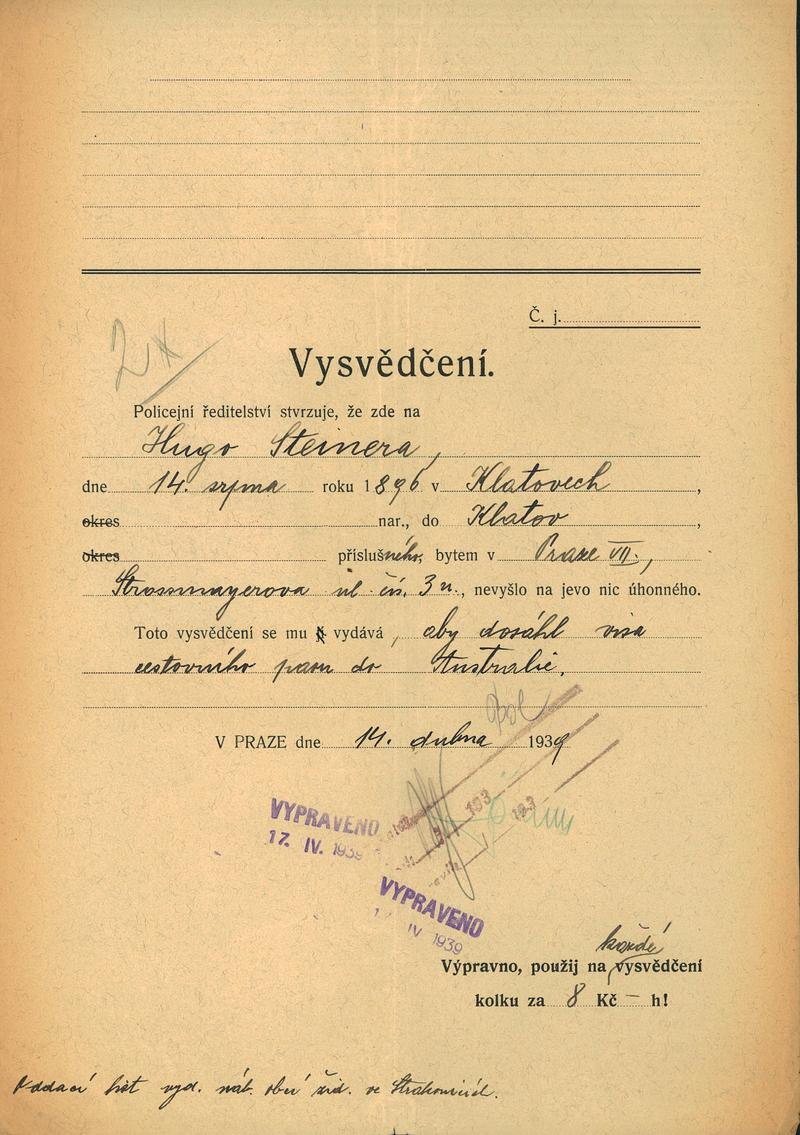 Č. j.
Vysvědčení.
Policejní ředitelství stvrzuje, že zde na
Hugo Steinera,
dne 14. srpna roku 1896 v Klatovech,
okres nar., do Klatov,
okres příslušného, bytem v Praze VII.,
Strossmayerova ul. čís. 3 n., nevyšlo na jevo nic úhonného.
Toto vysvědčení se mu vydává, aby dosáhl visa
cestovního pasu do Australie.
V PRAZE dne 14. dubna 1939
VYPRAVENO
17. IV. 1939
VYPRAVENO
IV 1939
každé
Výpravno, použij na vysvědčení
kolku za 8 Kč – h!
Oddací list vyd. náb. obcí žid. ve Strakonicích.